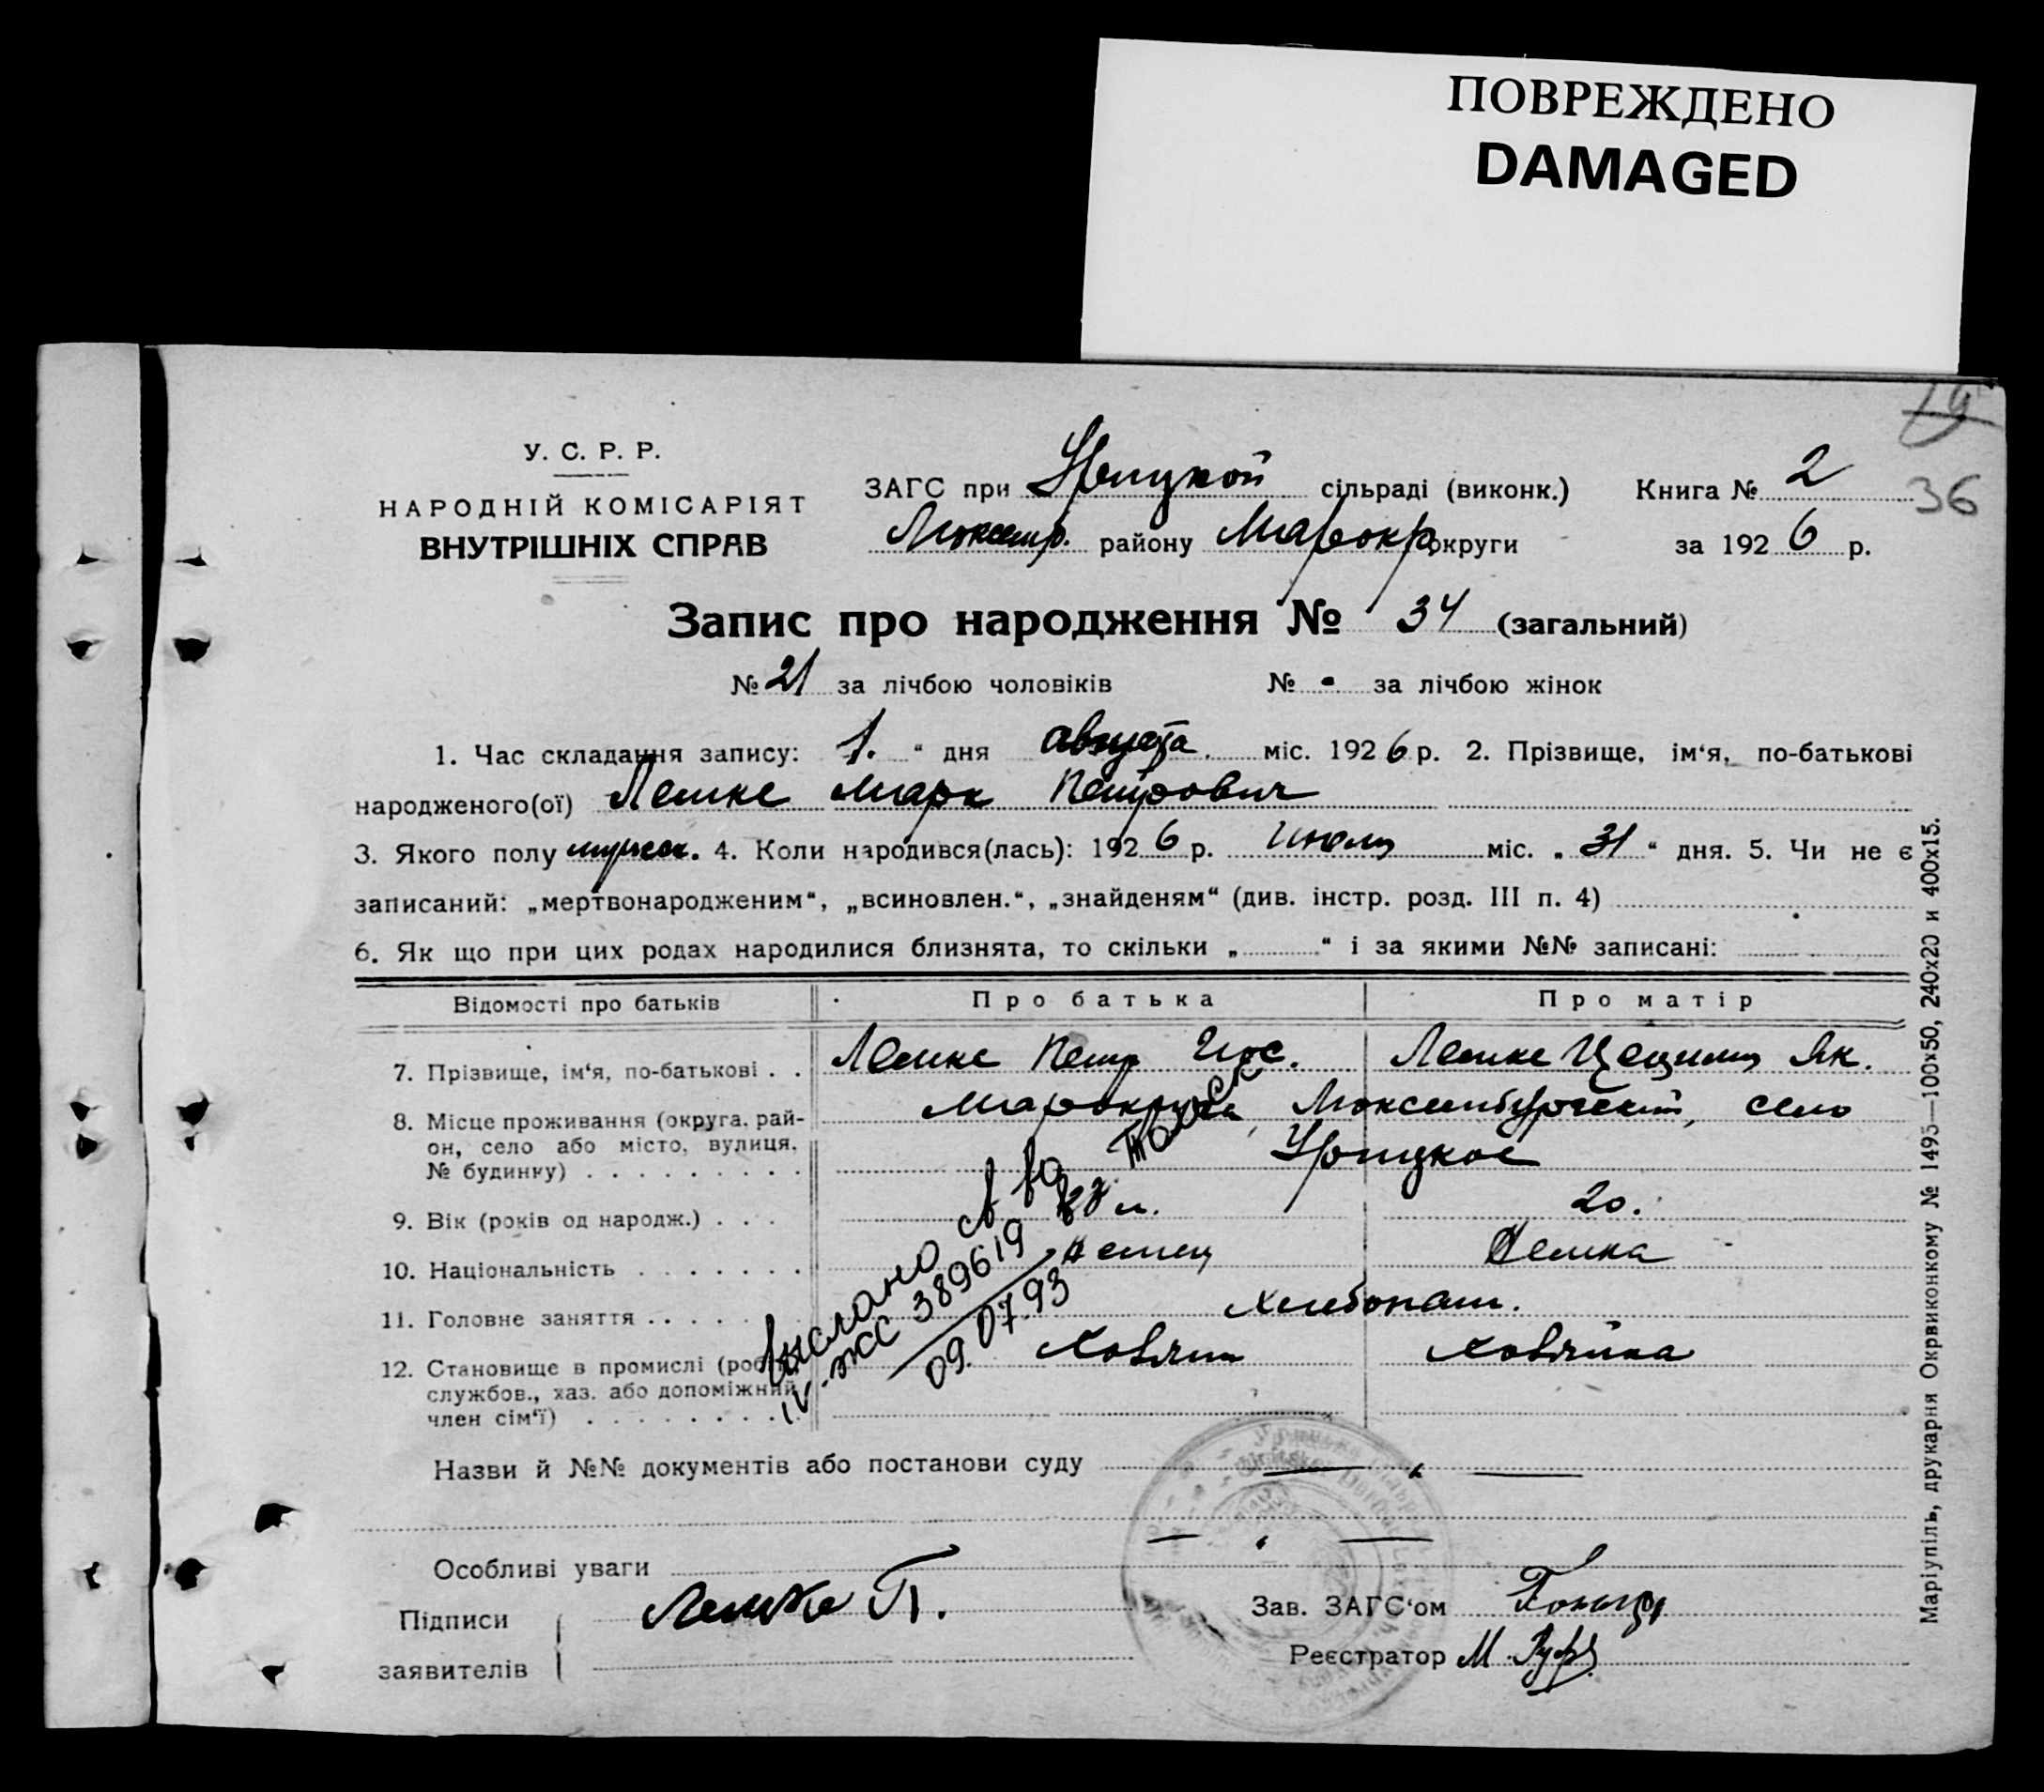 ПОВРЕЖДЕНО
DAMAGED
19
36
У. С. Р. Р.
НАРОДНІЙ КОМІСАРІЯТ
ВНУТРІШНІХ СПРАВ
ЗАГС при Урицкой сільраді (виконк.) Книга № 2
Люксемб. району Марокр. округи за 1926 р.
Запис про народження № 34 (загальний)
№ 21 за лічбою чоловіків № - за лічбою жінок
1. Час складання запису: 1. “ дня августа міс. 1926 р. 2. Прізвище, ім‘я, по-батькові
народженого(ої) Лемке Марк Петрович
3. Якого полу мужск. 4. Коли народився(лась): 1926 р. Июля міс. „ 31 “ дня. 5. Чи не є
записаний: „мертвонародженим“, „всиновлен.“, „знайденям“ (див. інстр. розд. III п. 4)
6. Як що при цих родах народилися близнята, то скільки „ “ і за якими №№ записані:
Відомості про батьків Про батька Про матір
7. Прізвище, ім‘я, по-батькові . . Лемке Петр Иос. Лемке Цецилия Як.
8. Місце проживання (округа, рай-
он, село або місто, вулиця,
№ будинку) Мариокруга, Люксембургский, село
Урицкое
9. Вік (років од народж.) . . . л. 20.
10. Національність Немец Немка
11. Головне заняття Хлебопаш.
12. Становище в промислі (роб.,
службов., хаз. або допоміжний
член сім‘ї) Хозяин Хозяйка
Выслано св во
IV-ЖС 389619
09.07.93
Назви й №№ документів або постанови суду
Особливі уваги
Підписи
заявителів
Лемке П.
Зав. ЗАГС‘ом
Реєстратор М.
Маріупіль, друкарня Окрвиконкому № 1495—100х50, 240х20 и 400х15.